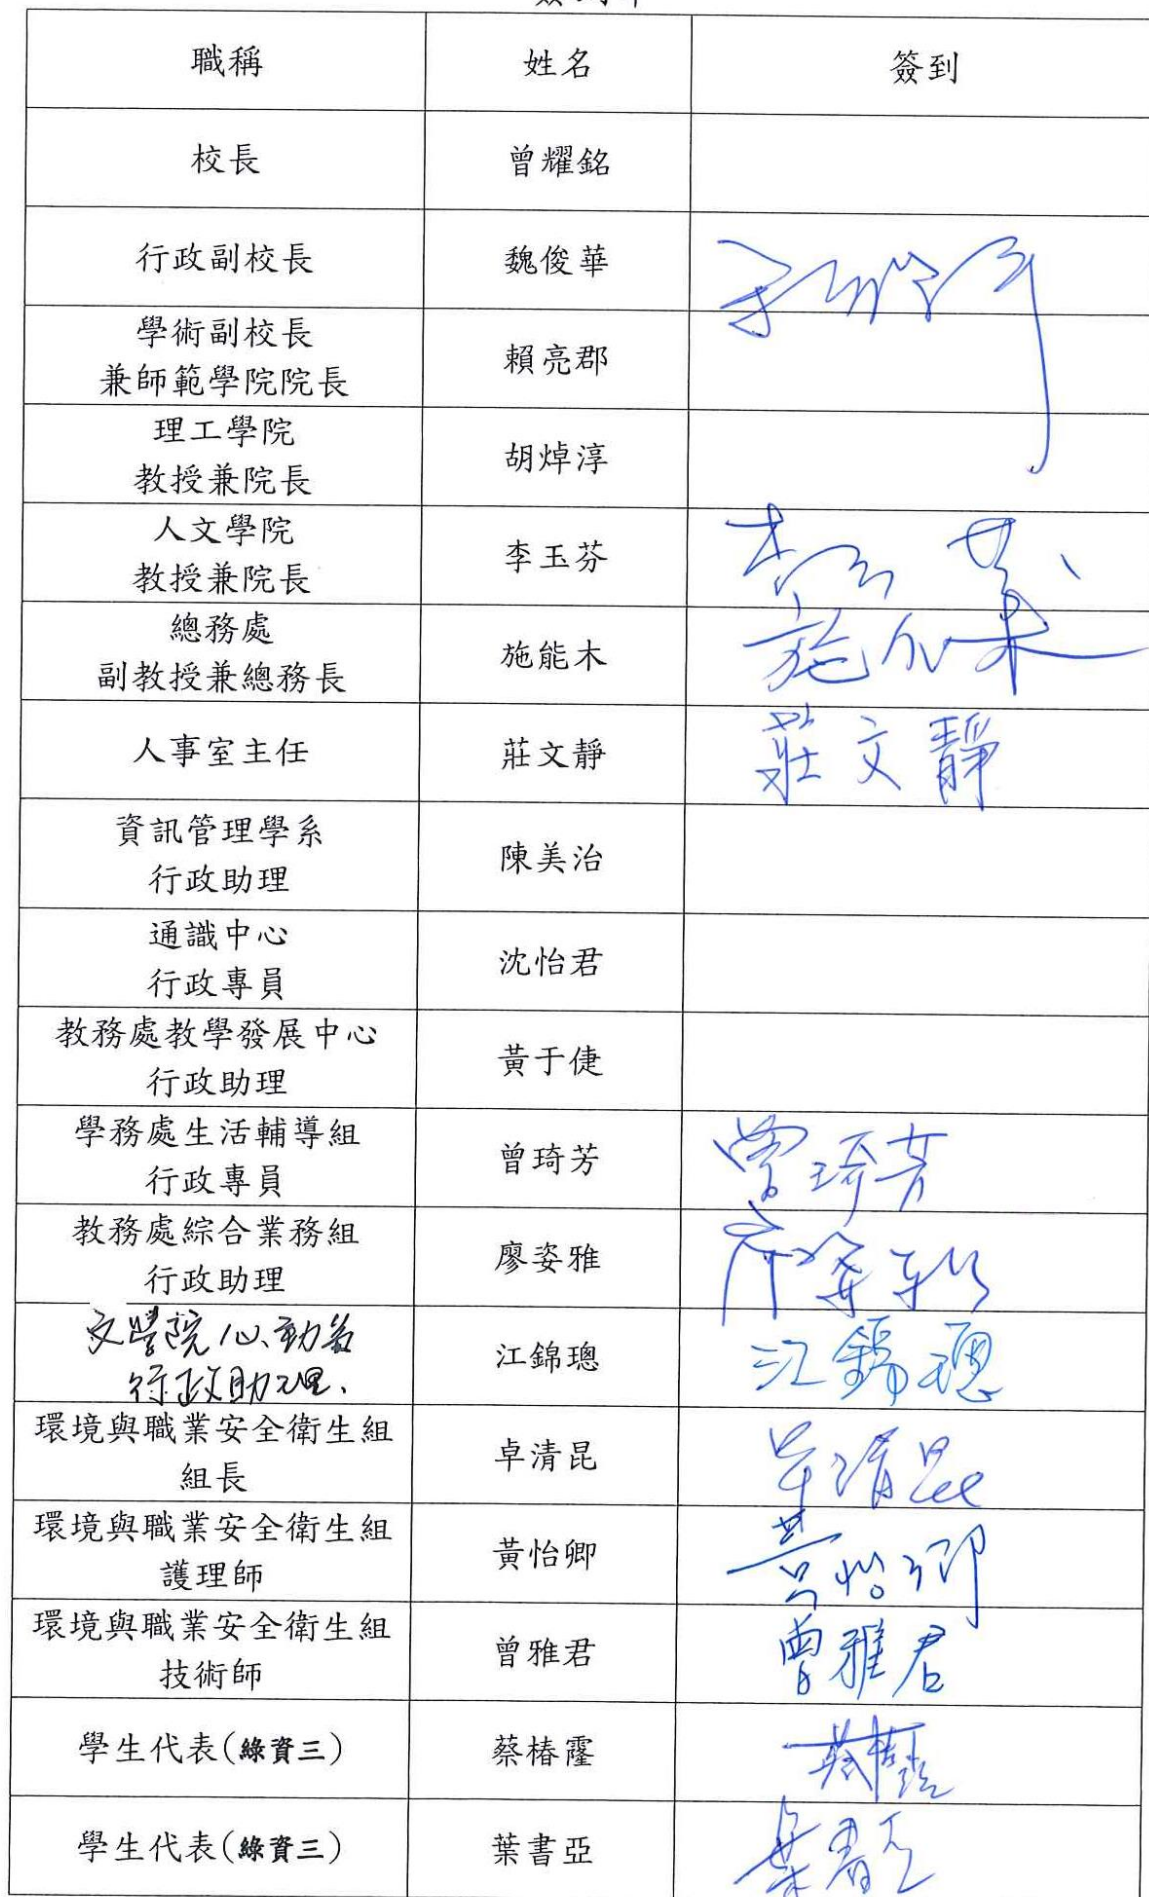 職稱 姓名 簽到
校長 曾耀銘
行政副校長 魏俊華
學術副校長
兼師範學院院長 賴亮郡
理工學院
教授兼院長 胡焯淳
人文學院
教授兼院長 李玉芬
總務處
副教授兼總務長 施能木 施能木
人事室主任 莊文靜 莊文靜
資訊管理學系
行政助理 陳美治
通識中心
行政專員 沈怡君
教務處教學發展中心
行政助理 黃于倢
學務處生活輔導組
行政專員 曾琦芳 曾琦芳
教務處綜合業務組
行政助理 廖姿雅 廖姿雅
文學院心動
行政助理. 江錦璁 江錦璁
環境與職業安全衛生組
組長 卓清昆 卓清昆
環境與職業安全衛生組
護理師 黃怡卿 黃怡卿
環境與職業安全衛生組
技術師 曾雅君 曾雅君
學生代表(綠資三) 蔡椿霳
學生代表(綠資三) 葉書亞 葉書亞